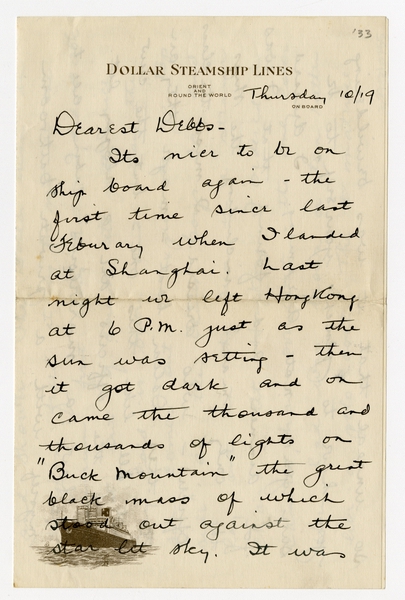 '33
DOLLAR STEAMSHIP LINES
ORIENT
AND
ROUND THE WORLD
Thursday 10/19
ON BOARD
Dearest Debbs-
Its nice to be on
ship board again - the
first time since last
Feburary when I landed
at Shanghai. Last
night we left HongKong
at 6 P.M. just as the
sun was setting - then
it got dark and on
came the thousand and
thousands of lights on
"Buck Mountain" the great
black mass of which
stood out against the
star lit sky. It was